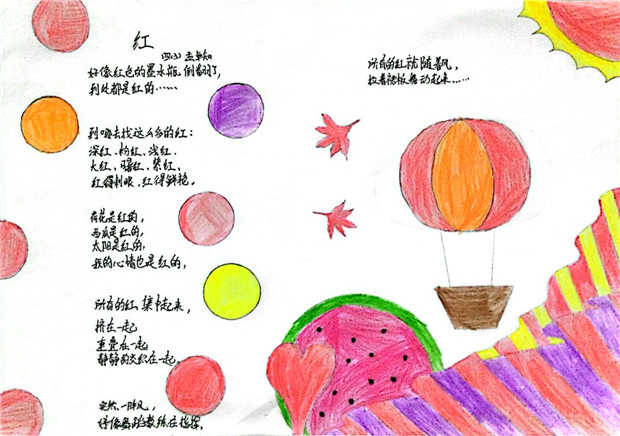 红
四(3) 孟
好像红色的墨水瓶,倒翻了,
到处都是红的……
到哪去找这么多的红:
深红、粉红、浅红、
大红、曙红、紫红、
红得刺眼,红得鲜艳。
荷花是红的,
西瓜是红的,
太阳是红的,
我的心情也是红的,
所有的红,集中起来,
挤在一起,
重叠在一起,
静静的交织在一起,
突然一阵风,
好像舞蹈教练在指挥,
所有的红就随着风,
起来……